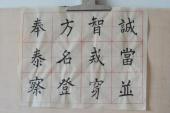 誠當並
智我穿
方名登
奉泰察